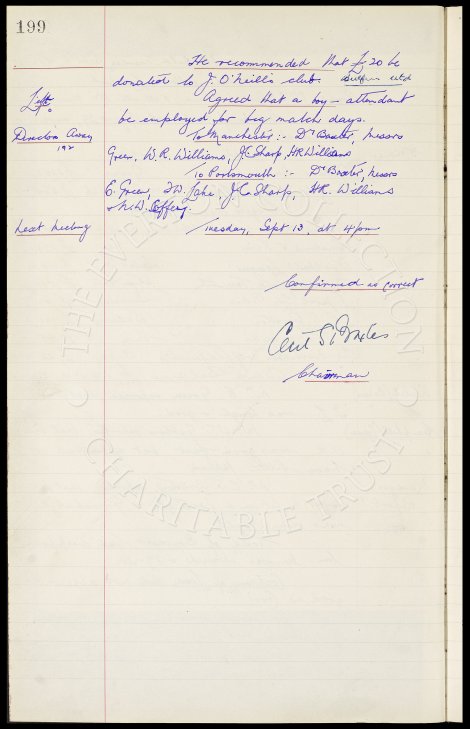 199
He recommended that £20 be
donated to J. O'Neill's club.
Lift.
Agreed that a boy-attendant
be employed for big match days.
Directors Away
To Manchester:- Dr Baxter, Messrs
Green, W. R. Williams, J. C. Sharp, H R Williams
To Portsmouth:- Dr Baxter, Messrs
C. Green, F. W. Lake, J. C. Sharp, H.R. Williams
& N. W. Coffey.
Next Meeting
Tuesday, Sept 13, at 4 pm
Confirmed as correct
Chairman
© THE EVERTON COLLECTION ©
CHARITABLE TRUST